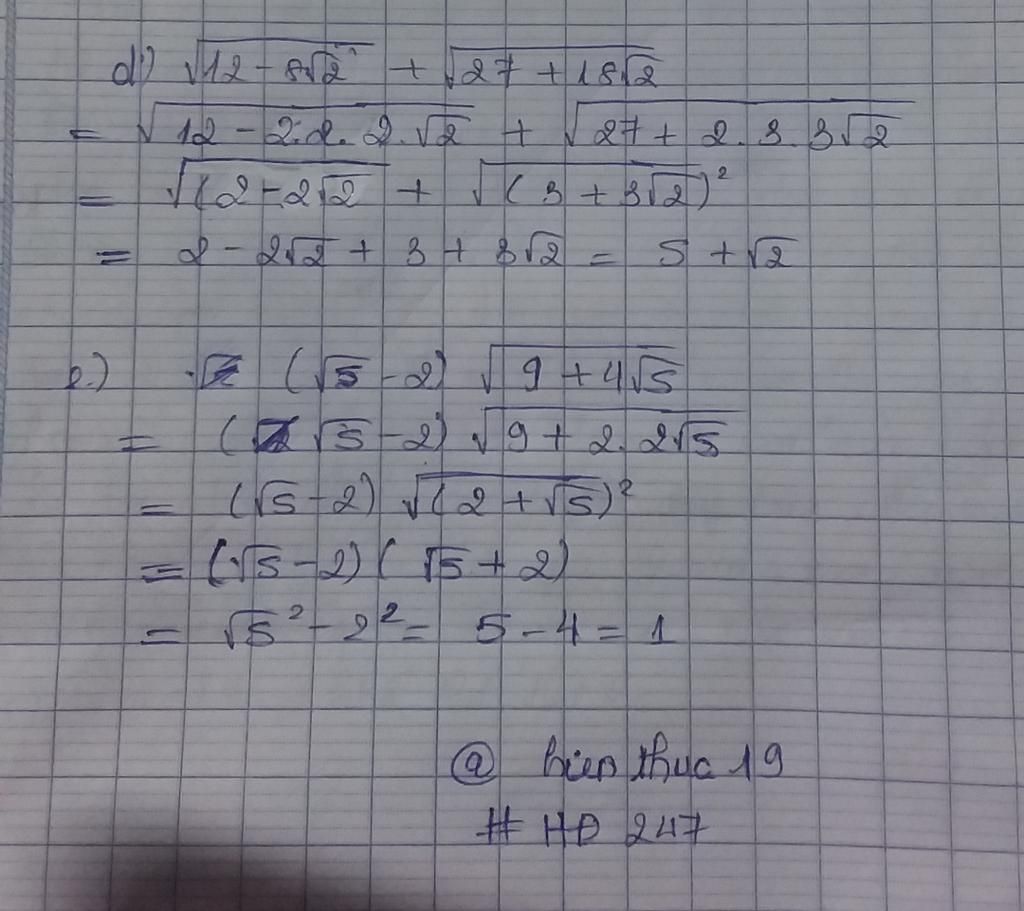 d) √(12 - 8√2) + √(27 + 18√2)
= √(12 - 2.2.2.√2) + √(27 + 2.3.3√2)
= √(2 - 2√2) + √(3 + 3√2)²
= 2 - 2√2 + 3 + 3√2 = 5 + √2
e.) (√5 - 2) √(9 + 4√5)
= (√5 - 2) √(9 + 2.2√5)
= (√5 - 2) √(2 + √5)²
= (√5 - 2) (√5 + 2)
= √5² - 2² = 5 - 4 = 1
@ hien thuc 19
# HD 247